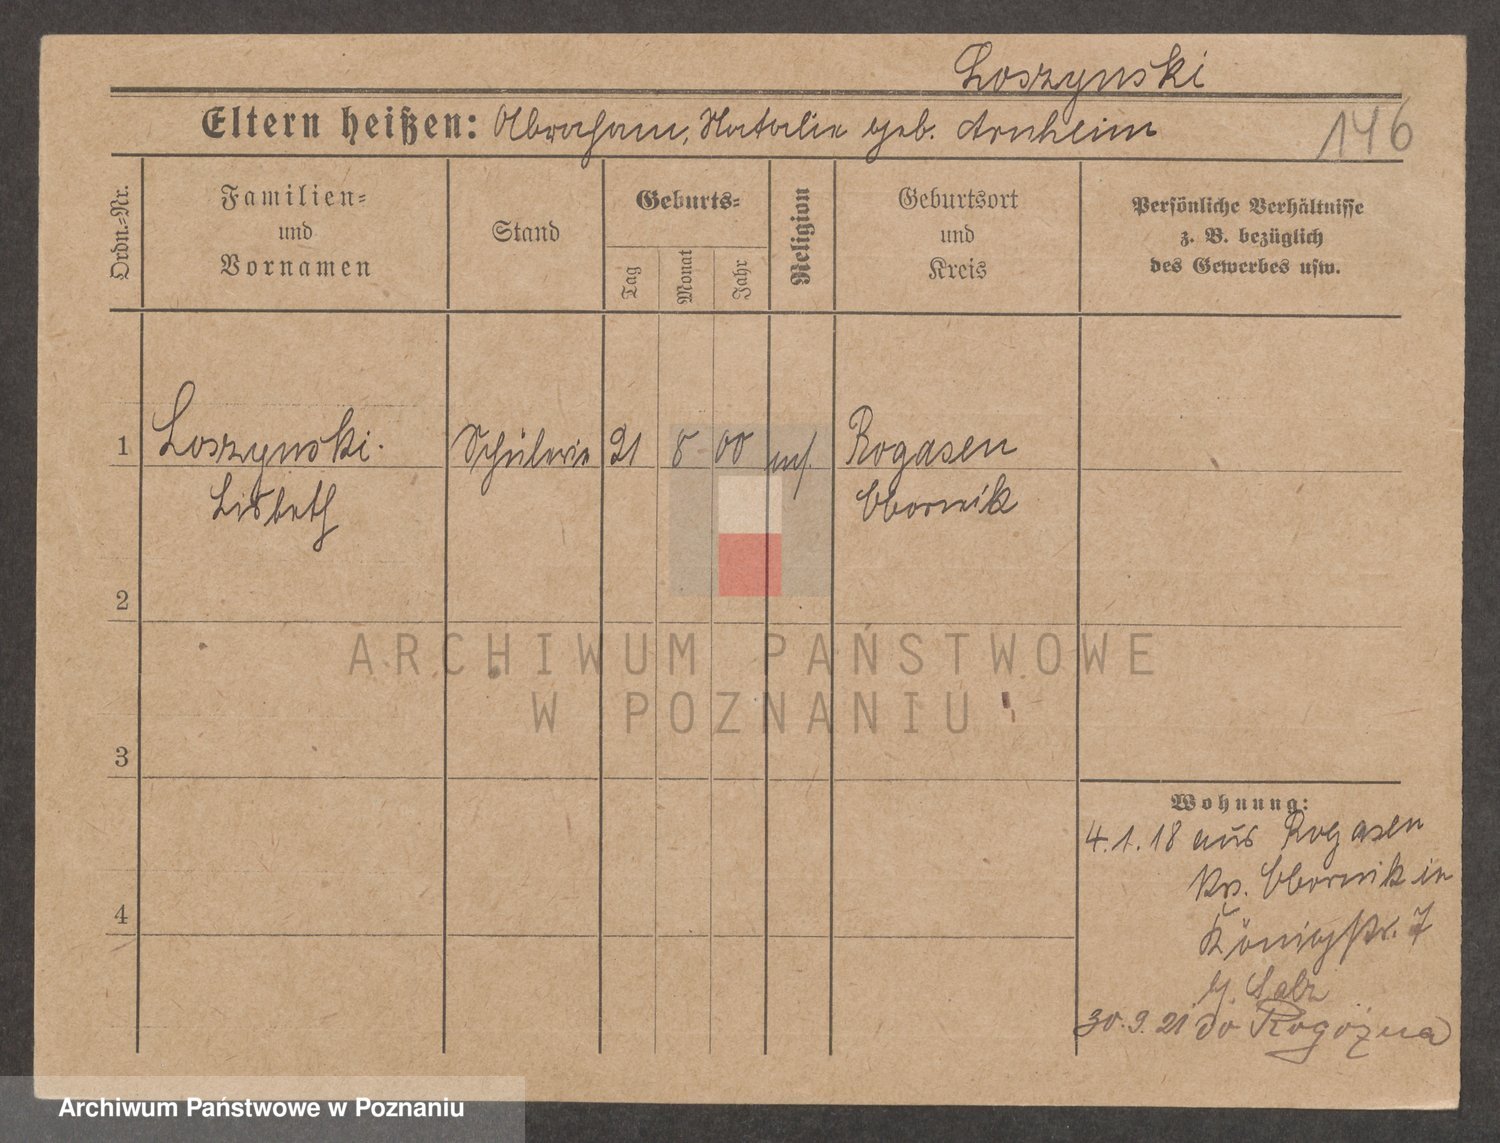 Loszynski
Eltern heißen: Abraham, Natalie geb. Arnheim
146
Ordn.-Nr.
Familien-
und
Vornamen
Stand
Geburts-
Tag
Monat
Jahr
Religion
Geburtsort
und
Kreis
Persönliche Verhältnisse
z. B. bezüglich
des Gewerbes usw.
1 Loszynski. Schülerin 21 8 00 mos. Rogasen
Lisbeth Obornik
2
3
4
Wohnung:
4.1.18 aus Rogasen
Krs. Obornik in
Königstr. 7
b.
30.9.21 do Rogoźna
ARCHIWUM PAŃSTWOWE
W POZNANIU
Archiwum Państwowe w Poznaniu